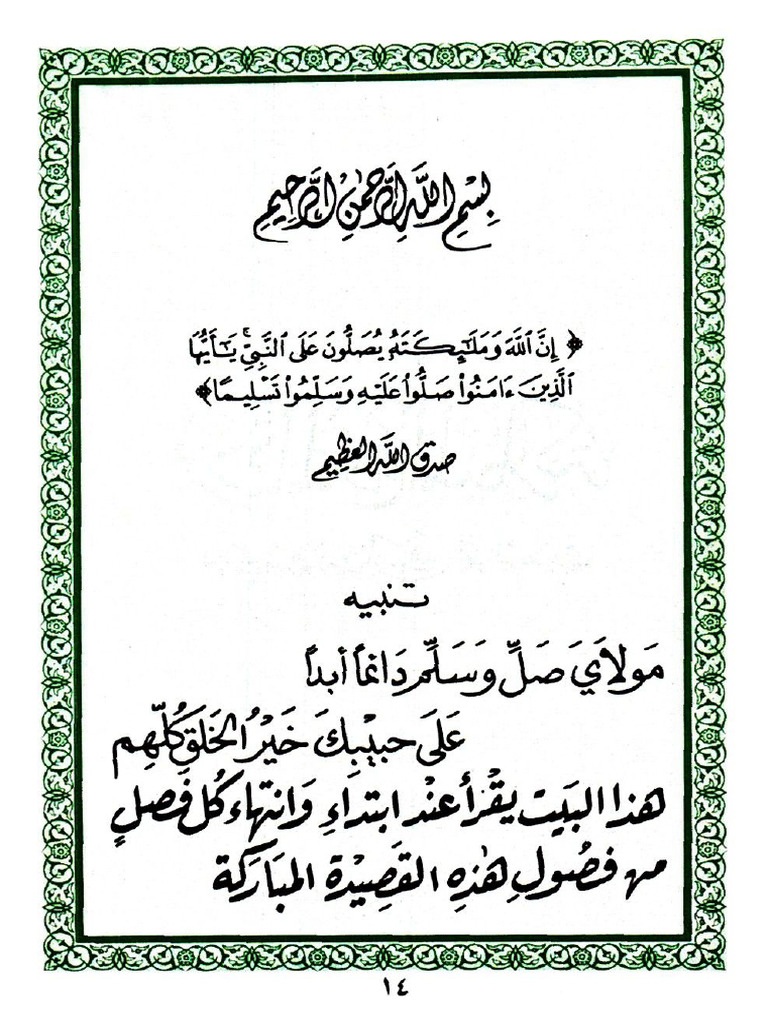 بِسْمِ اللَّهِ الرَّحْمٰنِ الرَّحِيمِ
﴿ إِنَّ ٱللَّهَ وَمَلَٰٓئِكَتَهُۥ يُصَلُّونَ عَلَى ٱلنَّبِيِّ ۚ يَٰٓأَيُّهَا
ٱلَّذِينَ ءَامَنُوا۟ صَلُّوا۟ عَلَيْهِ وَسَلِّمُوا۟ تَسْلِيمًا ﴾
صدق الله العظيم
تنبيه
مَولَايَ صَلِّ وَسَلِّم دَائماً أبداً
عَلَى حبيْبِكَ خَيْرُ الخَلقِ كُلِّهِم
هذا البَيت يقْرأ عنْد ابتداءِ وَانتهاء كُل فَصلٍ
من فصُولِ هٰذِه القَصِيْدة المبَارَكة
١٤